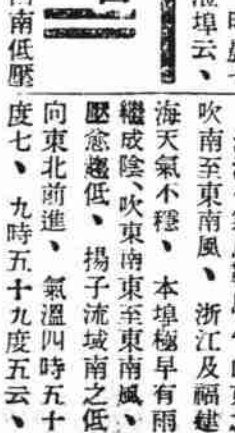 埠云、
吹南至東南風、浙江及福建
海天氣不穩、本埠極早有雨
繼成陰、吹東南東至東南風、
壓愈趨低、揚子流域南之低
向東北前進、氣溫四時五十
度七、九時五十九度五云、
南低壓